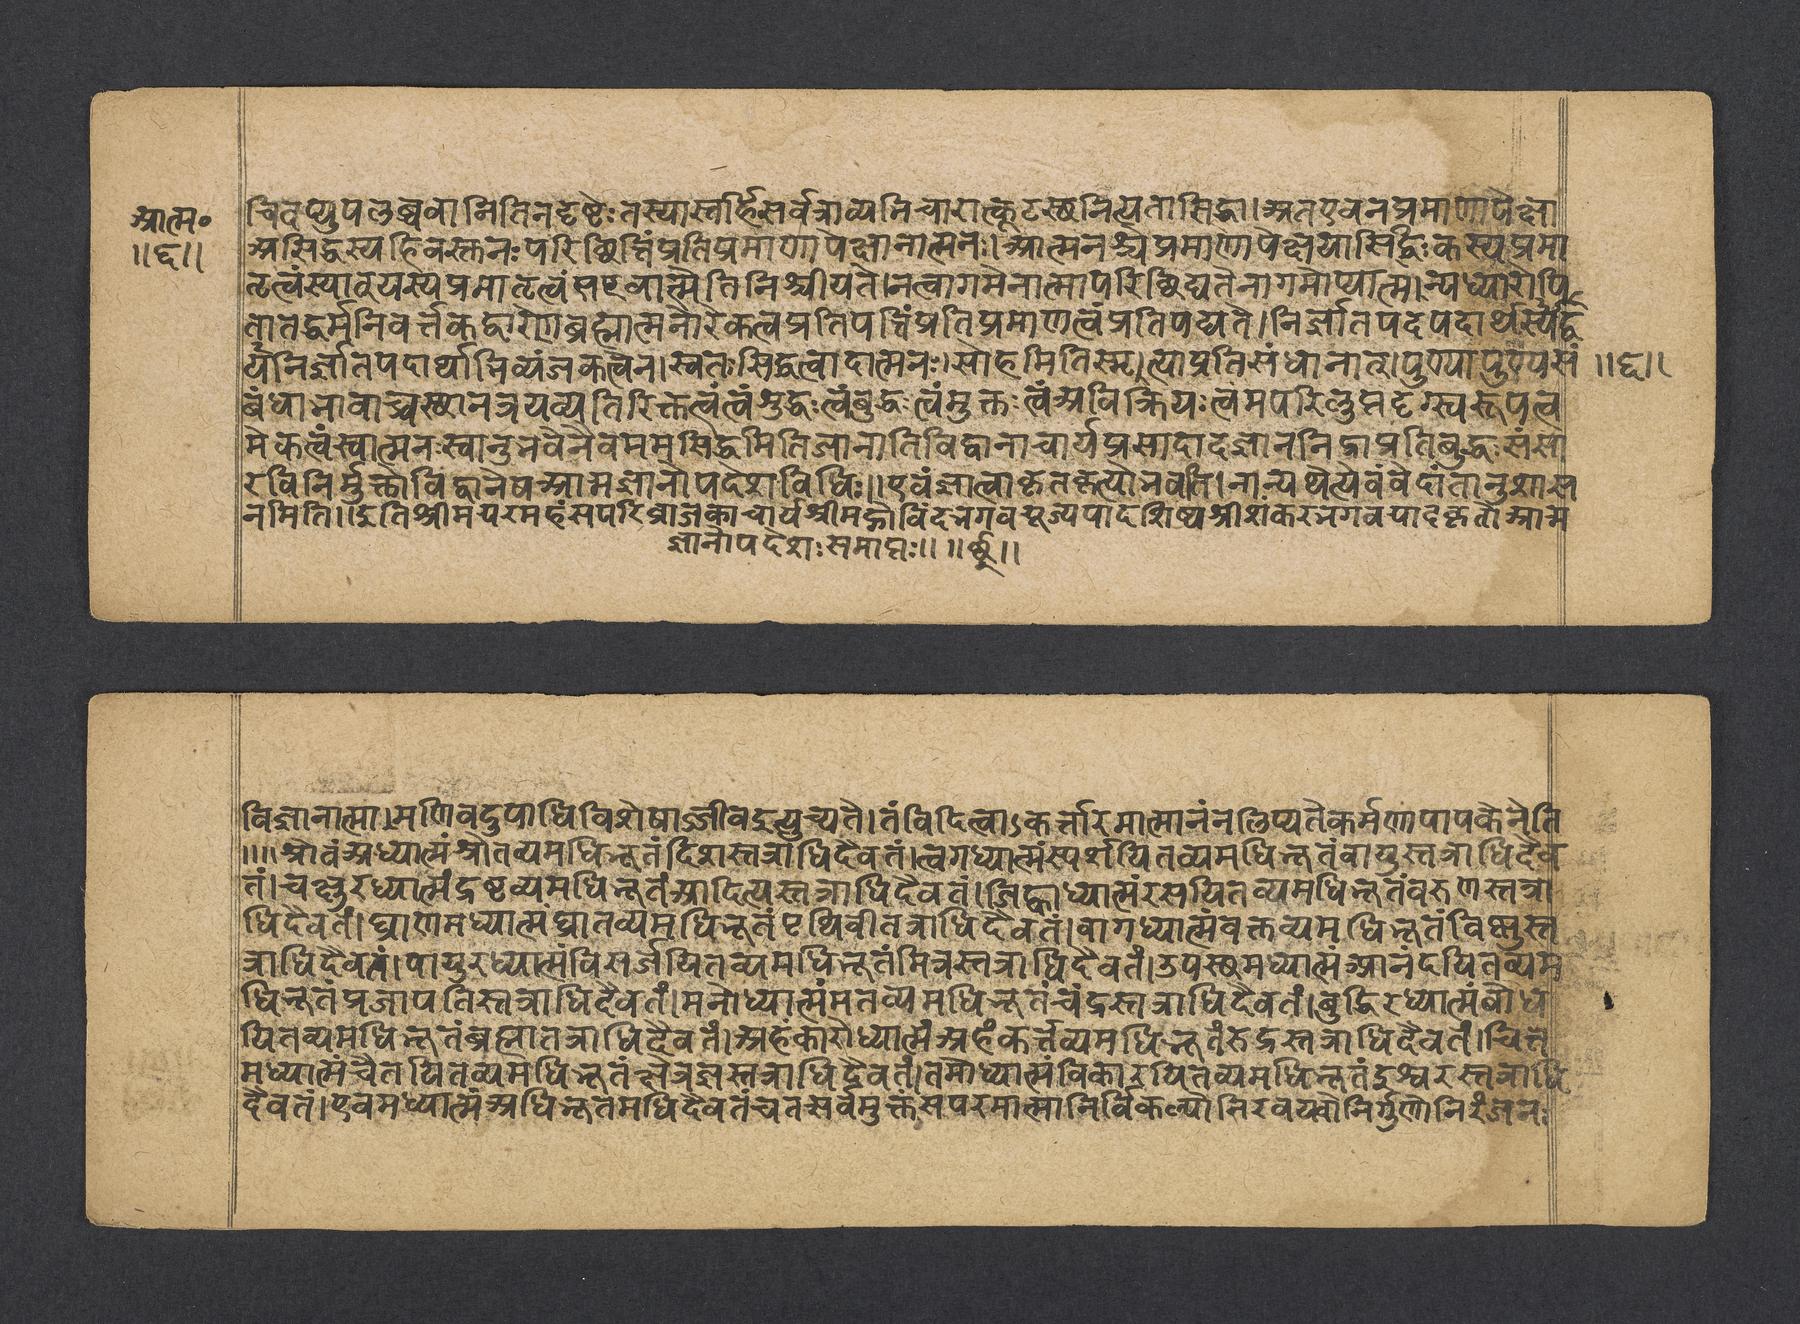 आत्म॰
॥६॥
चिदप्युपलब्धवानितिनदृष्टेःतस्यास्तर्हिसर्वत्राव्यभिचारात्कूटस्थनित्यतासिद्धा।अतएवनप्रमाणापेक्षा
असिद्धस्यहिवस्तुनःपरिछित्तिंप्रतिप्रमाणापेक्षानात्मनः।आत्मनश्चेप्रमाणापेक्षयासिद्धिःकस्यप्रमा
तृत्वंस्यात्यस्यप्रमातृत्वंसएवात्मेतिनिश्चीयते।नत्वागमेनात्मापरिछिद्यतेनागमोप्यात्मन्यध्यारोपि
तातद्धर्मनिवर्त्तकद्वारेणब्रह्मात्मनोरेकत्वप्रतिपत्तिंप्रतिप्रमाणत्वंप्रतिपद्यते।निर्ज्ञातपदपदार्थस्येह
र्यनिर्ज्ञातपदार्थाभिव्यंजकत्वेन।स्वतःसिद्धत्वादात्मनः।सोहमितिस्मृत्याप्रतिसंधानात्।पुण्यापुण्यसं
॥६॥
बंधाभावाच्चस्थानत्रयव्यतिरिक्तत्वंत्वंशुद्धःत्वंबुद्धःत्वंमुक्तःत्वंअविक्रियःत्वमपरिलुप्तदृग्स्वरूपत्व
मेकत्वंस्वात्मनःस्वानुभवेनैवममसिद्धमितिजानातिविद्वानाचार्यप्रसादादज्ञाननिद्राप्रतिबुद्धःसंसा
रविनिर्मुक्तोविद्वानेषआत्मज्ञानोपदेशविधिः॥एवंज्ञात्वाकृतकृत्योभवति।नान्यथेत्येवंवेदांतानुशास
नमिति॥इतिश्रीमत्परमहंसपरिव्राजकाचार्यश्रीमद्गोविंदभगवत्पूज्यपादशिष्यश्रीशंकरभगवत्पादकृतौआत्म
ज्ञानोपदेशःसमाप्तः॥ ॥
विज्ञानात्मा।मणिवदुपाधिविशेषाज्जीवइत्युच्यते।तंविदित्वाऽकर्त्तारमात्मानंनलिप्यतेकर्मणापापकेनेति
॥॥श्रोत्रंअध्यात्मंश्रोतव्यमधिभूतंदिशस्तत्राधिदैवतं।त्वगध्यात्मंस्पर्शयितव्यमधिभूतंवायुस्तत्राधिदैव
तं।चक्षुरध्यात्मंद्रष्टव्यमधिभूतंआदित्यस्तत्राधिदैवतं।जिह्वाध्यात्मंरसयितव्यमधिभूतंवरुणस्तत्रा
धिदैवतं।घ्राणमध्यात्मंघ्रातव्यमधिभूतंपृथिवीतत्राधिदैवतं।वागध्यात्मंवक्तव्यमधिभूतंविष्णुस्त
त्राधिदैवतं।पायुरध्यात्मंविसर्जयितव्यमधिभूतंमित्रस्तत्राधिदैवतं।उपस्थमध्यात्मंआनंदयितव्यम
धिभूतंप्रजापतिस्तत्राधिदैवतं।मनोध्यात्मंमंतव्यमधिभूतंचंद्रस्तत्राधिदैवतं।बुद्धिरध्यात्मंबोध
यितव्यमधिभूतंब्रह्मातत्राधिदैवतं।अहंकारोध्यात्मंअहंकर्त्तव्यमधिभूतंरुद्रस्तत्राधिदैवतं।चित्त
मध्यात्मंचेतयितव्यमधिभूतंक्षेत्रज्ञस्तत्राधिदैवतं।तमोध्यात्मंविकारयितव्यमधिभूतंईश्वरस्तत्राधि
दैवतं।एवमध्यात्मंअधिभूतमधिदैवतंचतत्सर्वमुक्तंसपरमात्मानिर्विकल्पोनिरवयवोनिर्गुणोनिरंजनः